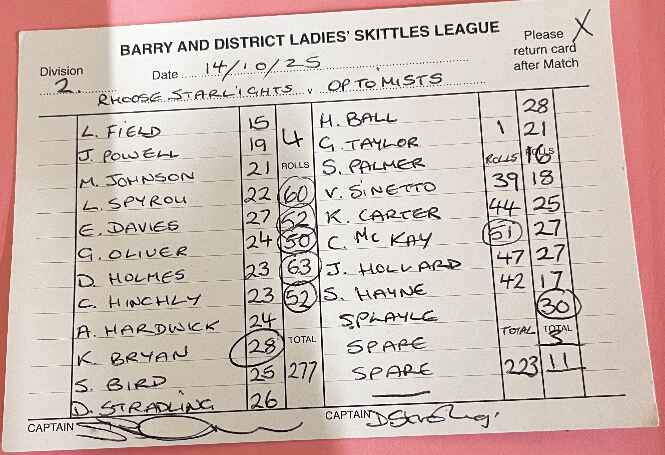 BARRY AND DISTRICT LADIES' SKITTLES LEAGUE
Please return card after Match X
Division 2. Date 14/10/25
RHOOSE STARLIGHTS v OPTOMISTS
L. FIELD 15 4 H. BALL 28
J. POWELL 19 G. TAYLOR 1 21
M. JOHNSON 21 ROLLS S. PALMER ROLLS 16 ROLLS
L. SPYROU 22 60 V. SINETTO 39 18
E. DAVIES 27 52 K. CARTER 44 25
G. OLIVER 24 50 C. McKAY 51 27
D. HOLMES 23 63 J. HOLLARD 47 27
C. HINCHLY 23 52 S. HAYNE 42 17
A. HARDWICK 24 SPLAYLE 30
K. BRYAN 28 TOTAL SPARE TOTAL TOTAL 3
S. BIRD 25 277 SPARE 223 11
D. STRADLING 26
CAPTAIN CAPTAIN